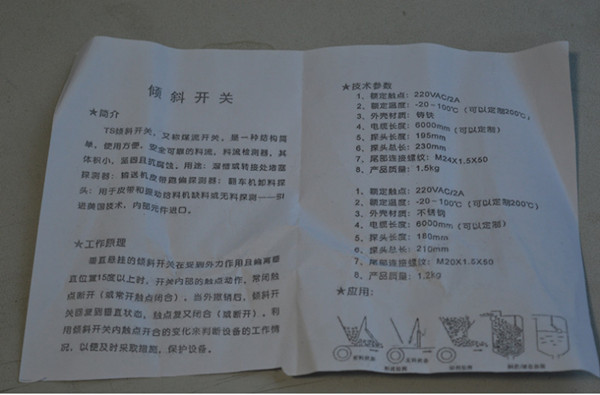 倾斜开关
★简介
TS倾斜开关,又称煤流开关,是一种结构简
单,使用方便,安全可靠的料流,料流检测器,其
体积小,坚固且抗腐蚀。用途:溜槽或转接处堵塞
探测器;输送机皮带跑偏探测器;翻车机卸料探
头;用于皮带和振动给料机缺料或无料探测——引
进美国技术,内部元件进口。
★工作原理
垂直悬挂的倾斜开关在受到外力作用且偏离垂
直位置15度以上时,开关内部的触点动作,常闭触
点断开(或常开触点闭合)。当外力撤销后,倾斜开
关恢复到垂直状态,触点复又闭合(或断开)。利
用倾斜开关内触点开合的变化来判断设备的工作情
况,以便及时采取措施,保护设备。
★技术参数
1、额定触点:220VAC/2A
2、额定温度:-20-100℃(可以定制200℃)
3、外壳材质:铸铁
4、电缆长度:6000mm(可以定制)
5、探头长度:195mm
6、探头总长:230mm
7、尾部连接螺纹:M24X1.5X50
8、产品质量:1.5kg
1、额定触点:220VAC/2A
2、额定温度:-20-100℃(可以定制200℃)
3、外壳材质:不锈钢
4、电缆长度:6000mm(可以定制)
5、探头长度:180mm
6、探头总长:210mm
7、尾部连接螺纹:M20X1.5X50
8、产品质量:1.2kg
★应用: